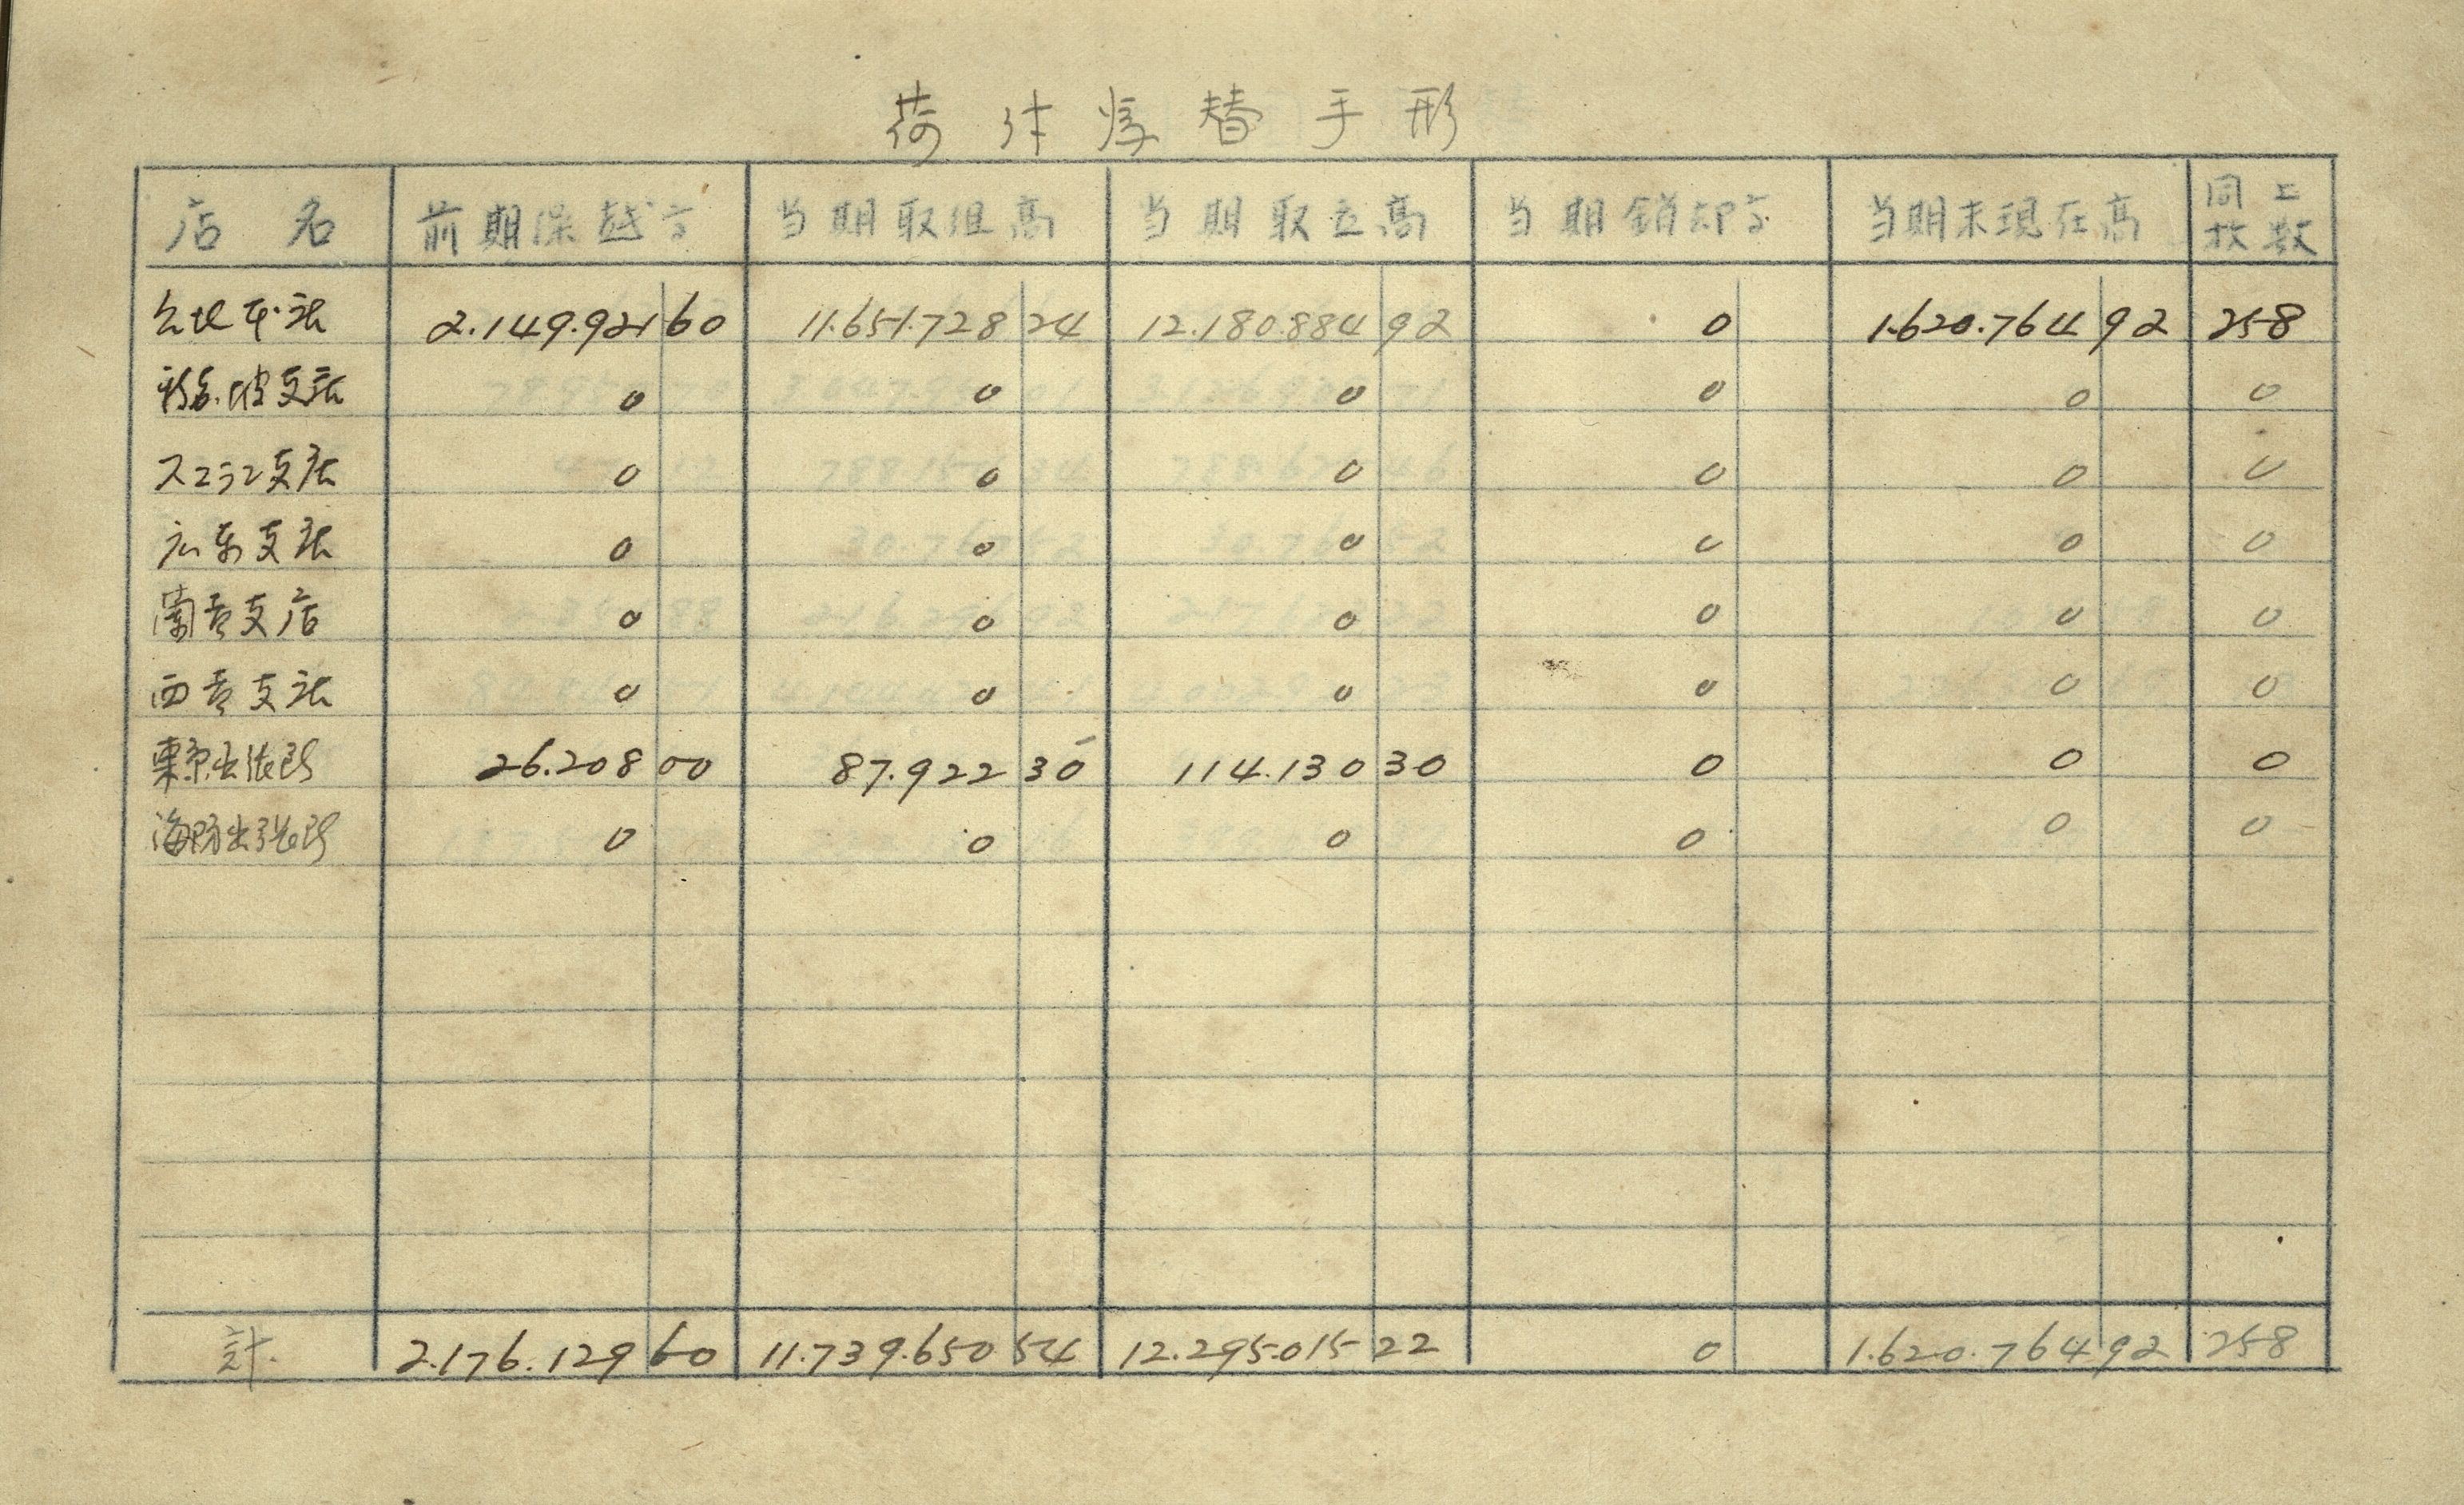 荷付為替手形
店 名 前期繰越高 当期取組高 当期取立高 当期銷却高 当期末現在高 同上枚数
台北本社 2.149.921 60 11.651.728 24 12.180.884 92 0 1.620.764 92 258
新嘉坡支社 0 0 0 0 0 0
スマラン支社 0 0 0 0 0 0
広東支社 0 0 0 0 0 0
蘭貢支店 0 0 0 0 0 0
西貢支社 0 0 0 0 0 0
東京出張所 26.208 00 87.922 30 114.130 30 0 0 0
海防出張所 0 0 0 0 0 0
計 2.176.129 60 11.739.650 54 12.295.015 22 0 1.620.764 92 258